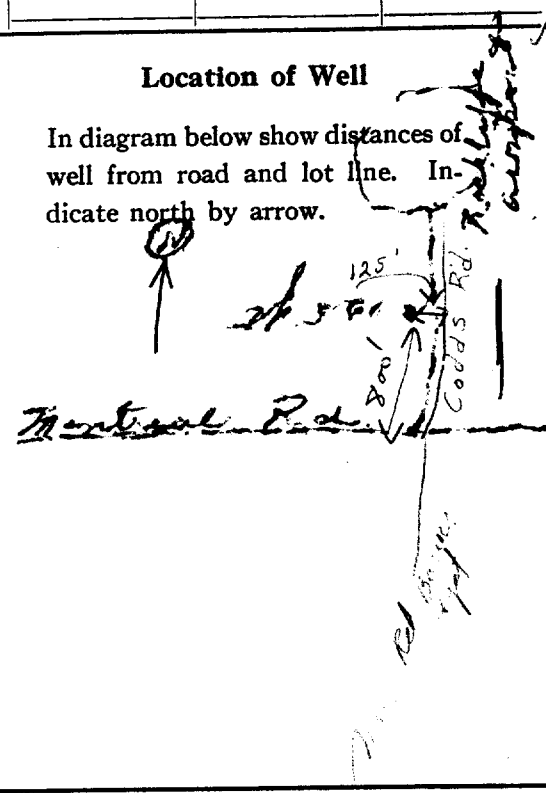 Location of Well
In diagram below show distances of
well from road and lot line. In-
dicate north by arrow.
N
125'
Codds Rd.
800'
Montreal Rd.
Rd